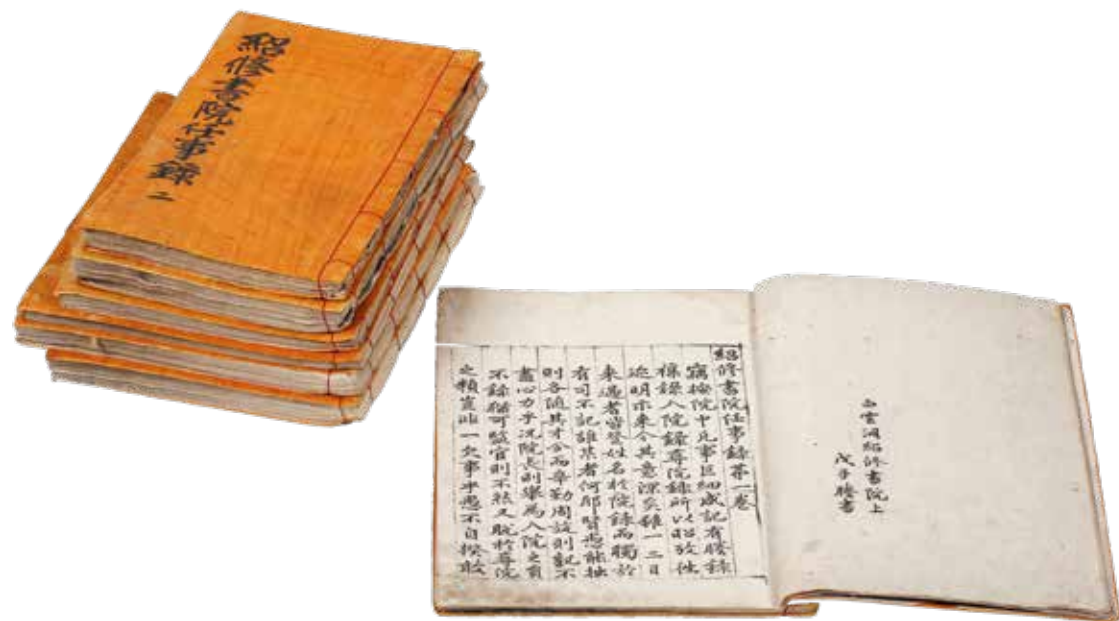 紹修書院任事錄 二
白雲洞紹修書院上
戊子謄書
紹修書院任事錄第一卷
竊檢院中凡事巨細咸記有謄錄
錄入院錄尋院錄所以昭攷往
迹明示來今其意深矣雖一二日
來過者皆登姓名於院錄而獨於
有司不記誰某者何耶賢愚能拙
則各隨其才分而辛勤周旋則豈不
盡心力乎況院長則舉為入院之員
不錄猶可監官則不然又脫於尋院
之類豈非一欠事乎愚不自揆敢